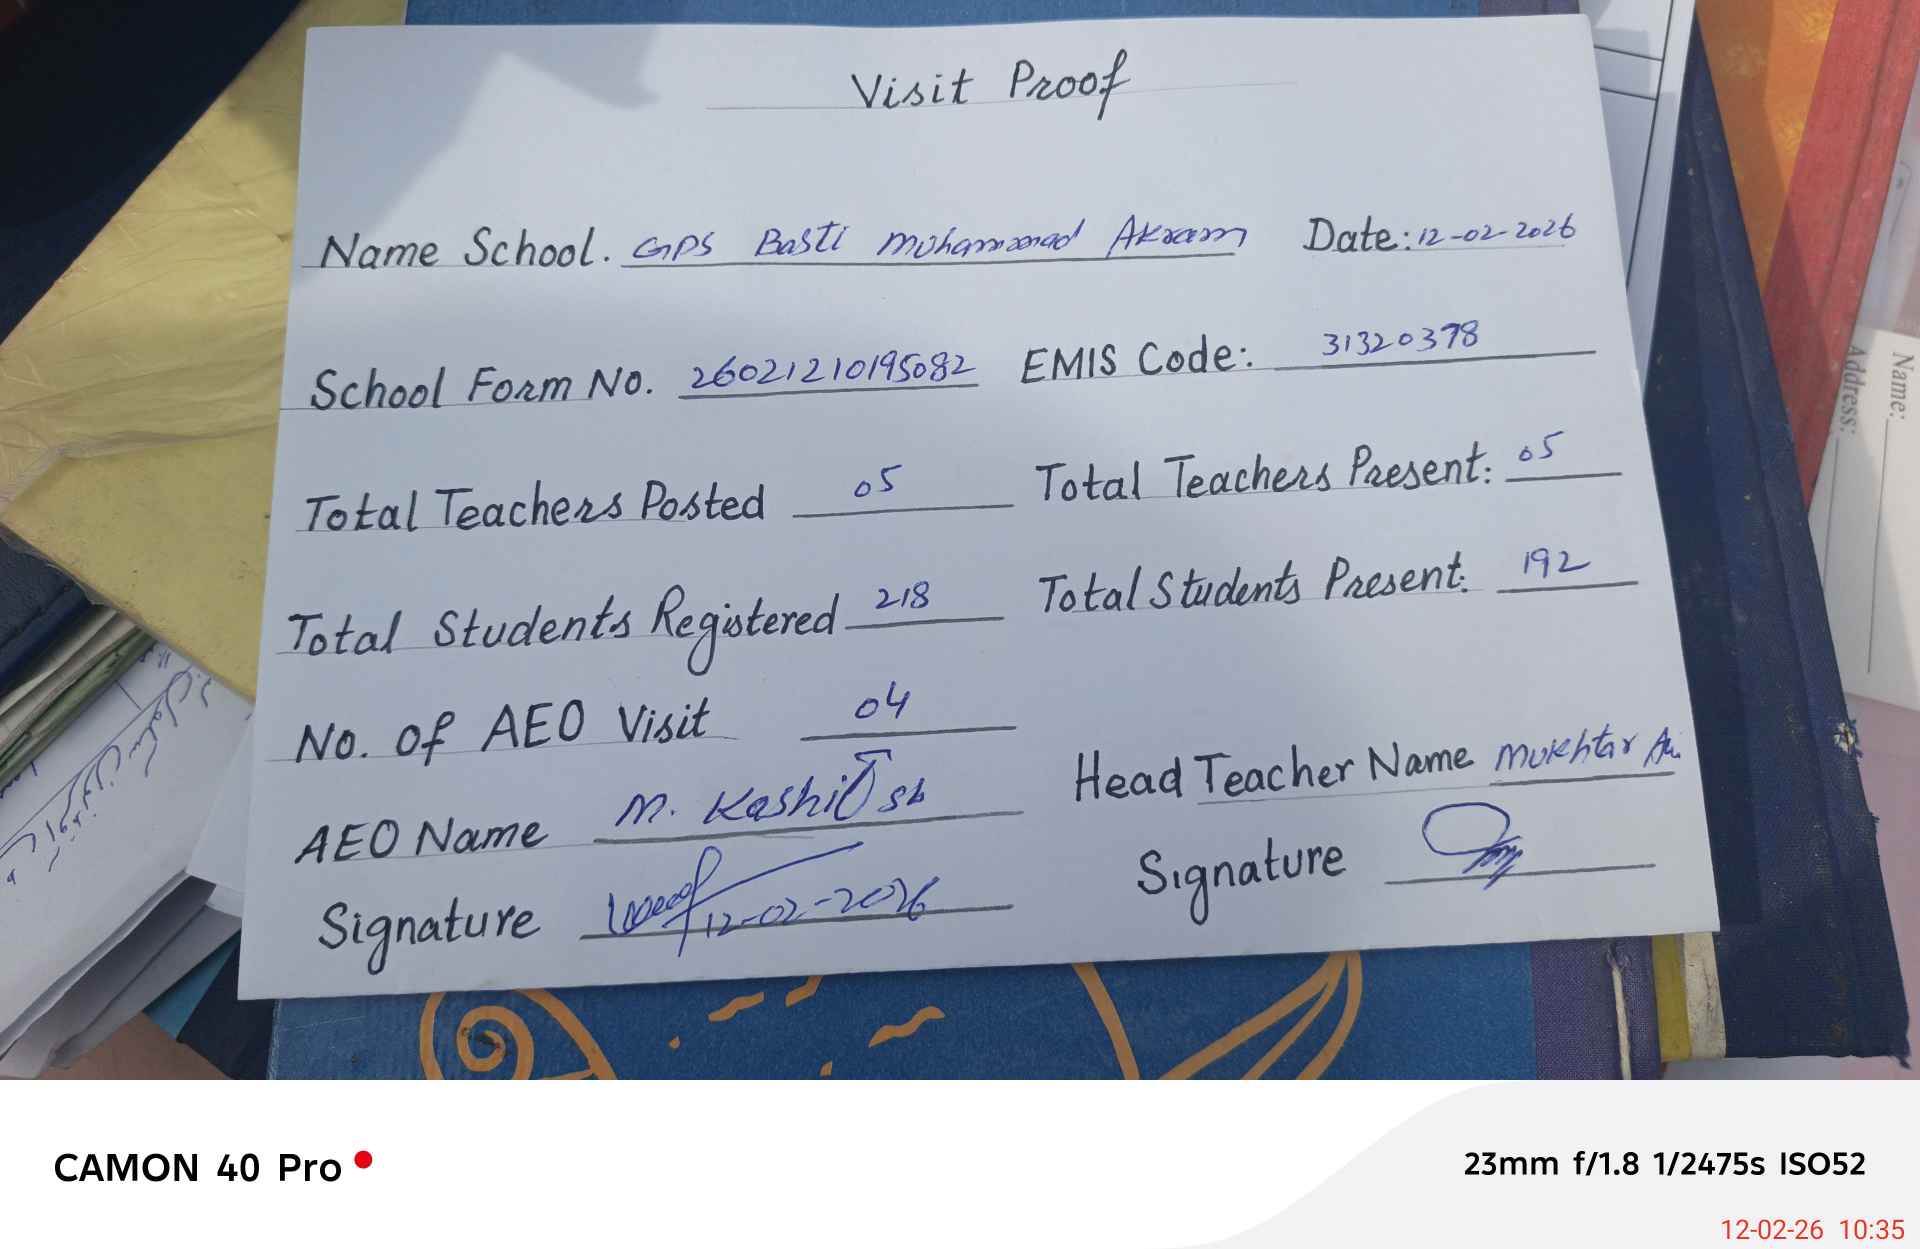 Visit Proof
Name School. GPS Basti Muhammad Akram Date: 12-02-2026
School Form No. 26021210195082 EMIS Code: 31320378
Total Teachers Posted 05 Total Teachers Present: 05
Total Students Registered 218 Total Students Present: 192
No. of AEO Visit 04
AEO Name M. Kashif sb Head Teacher Name Mukhtar Ali
Signature 12-02-2026 Signature
Name:
Address:
CAMON 40 Pro
23mm f/1.8 1/2475s ISO52
12-02-26 10:35